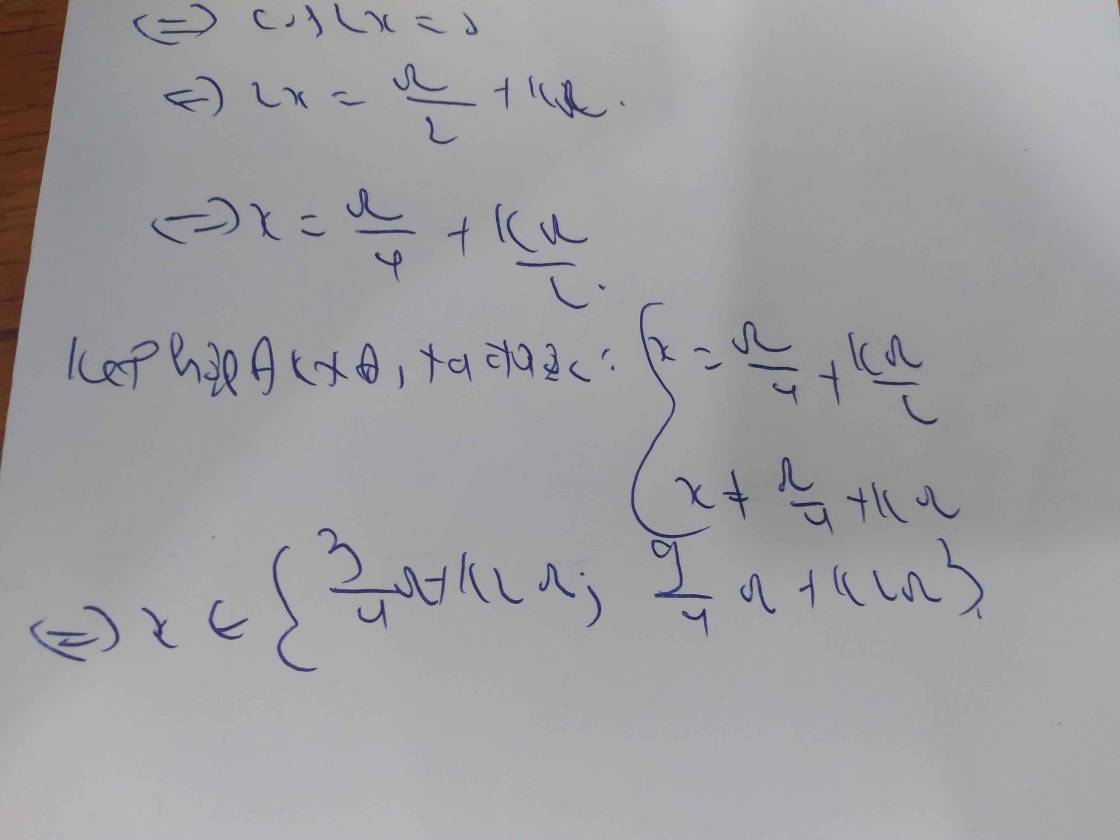 ⇔ cos2x = 0
⇔ 2x = π/2 + kπ.
⇔ x = π/4 + kπ/2.
Kết hợp ĐKXĐ, ta được: { x = π/4 + kπ/2
x ≠ π/4 + kπ
⇔ x ∈ { 3/4 π + k2π; 9/4 π + k2π }